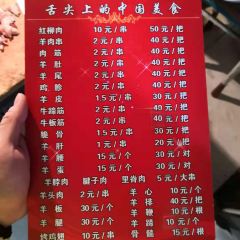 舌尖上的中国美食
红柳肉 10元/串 50元/把
羊肉串 2元/串 40元/把
肉筋 2元/串 40元/把
羊肚 2元/串 40元/把
羊尾 2元/串 40元/把
鸡胗 2元/串 40元/把
羊皮 1.5元/串 30元/把
牛蹄筋 2元/串 40元/把
牛板筋 2元/串 40元/把
脆骨 2元/串 40元/把
羊肝 1.5元/串 30元/把
羊腰 15元/个 30元/对
羊蛋 15元/个 30元/对
羊脖肉 腱子肉 里脊肉 5元/大串
羊头肉 2元/串 羊心 10元/个
羊板 30元/个 羊排 10元/根
羊腿 30元/个 羊鞭 10元/根
烤鸡翅 10元/串 羊蹄 10元/个
骨髓 15元/根